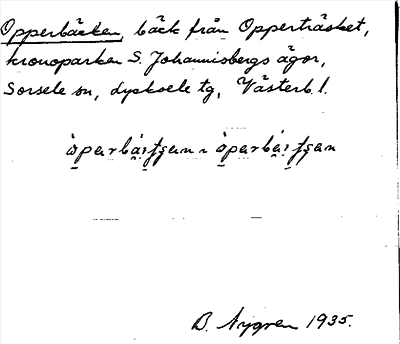 Opperbäcken, bäck från Opperträsket,
kronoparken S. Johannisbergs ägor,
Sorsele sn, Lycksele tg, Västerb. l.
B. Nygren 1935.